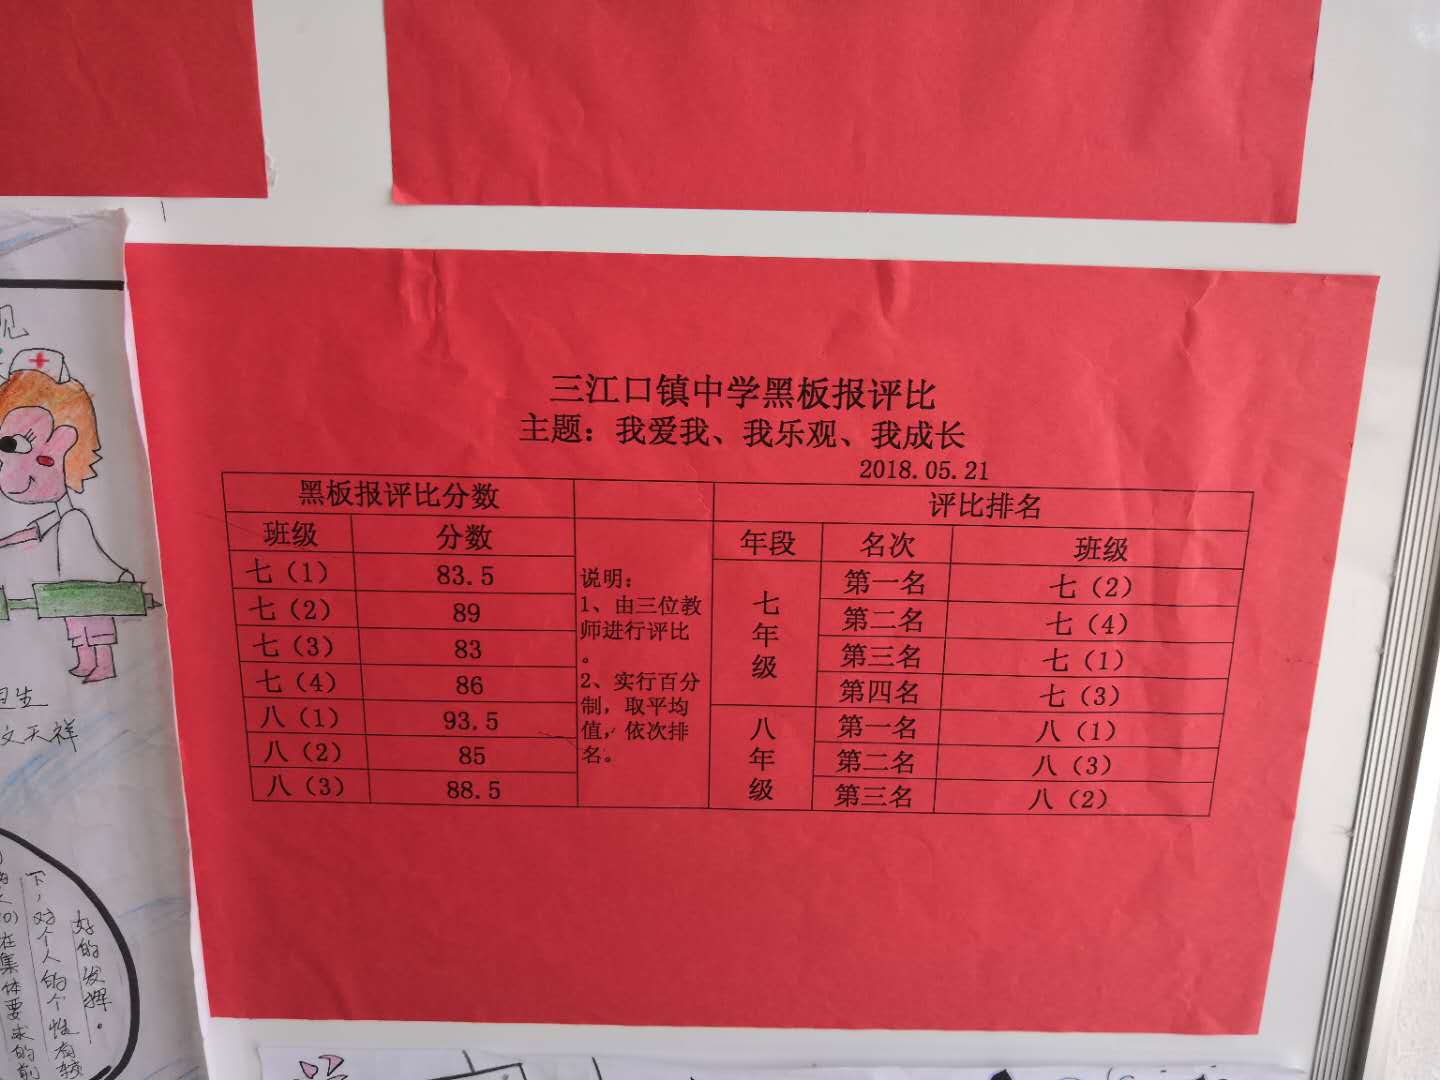 三江口镇中学黑板报评比
主题：我爱我、我乐观、我成长
2018.05.21
黑板报评比分数 评比排名
班级 分数 年段 名次 班级
七（1） 83.5
七（2） 89
七（3） 83
七（4） 86
八（1） 93.5
八（2） 85
八（3） 88.5
说明：
1、由三位教
师进行评比
。
2、实行百分
制，取平均
值，依次排
名。
七年级
第一名 七（2）
第二名 七（4）
第三名 七（1）
第四名 七（3）
八年级
第一名 八（1）
第二名 八（3）
第三名 八（2）
文天祥
好的发挥。
下，对个人的个性有较
在集体要求的前